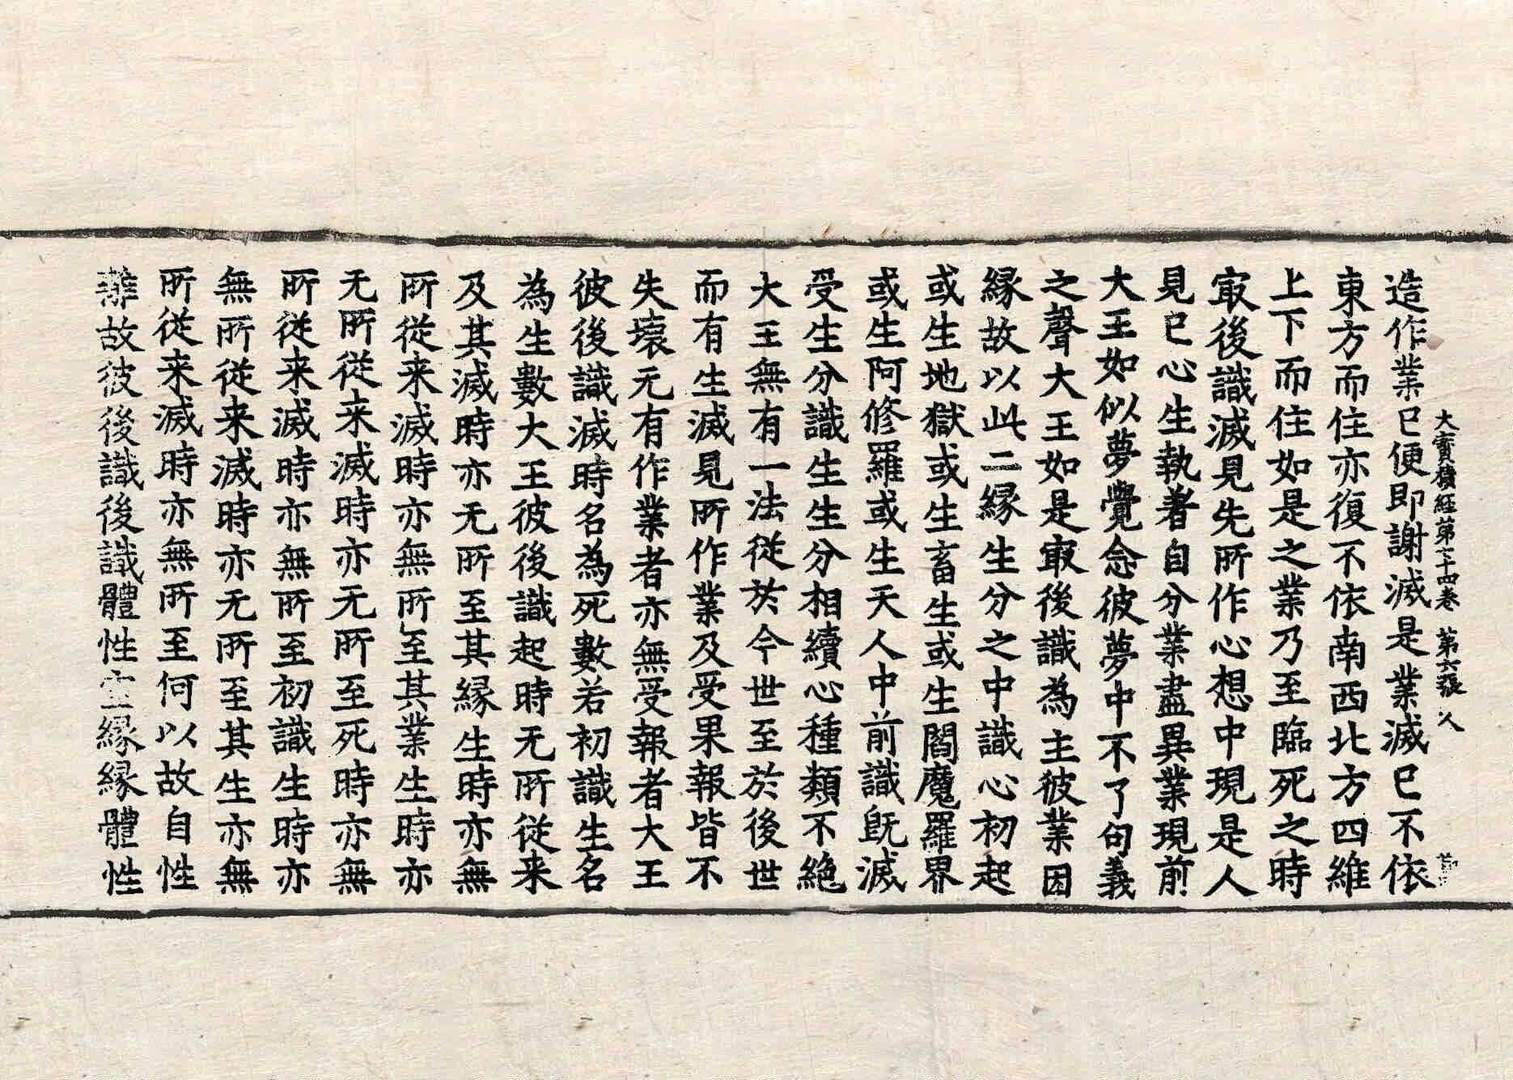 大寶積經第七十四卷 第六張 乆
造作業已便即謝滅是業滅已不依
東方而住亦復不依南西北方四維
上下而住如是之業乃至臨死之時
㝡後識滅見先所作心想中現是人
見已心生執著自分業盡異業現前
大王如似夢覺念彼夢中不了句義
之聲大王如是㝡後識為主彼業因
緣故以此二緣生分之中識心初起
或生地獄或生畜生或生閻魔羅界
或生阿修羅或生天人中前識旣滅
受生分識生生分相續心種類不絶
大王無有一法從於今世至於後世
而有生滅見所作業及受果報皆不
失壞无有作業者亦無受報者大王
彼後識滅時名為死數若初識生名
為生數大王彼後識起時无所從来
及其滅時亦无所至其緣生時亦無
所從来滅時亦無所至其業生時亦
无所從来滅時亦无所至死時亦無
所從来滅時亦無所至初識生時亦
無所從来滅時亦无所至其生亦無
所從来滅時亦無所至何以故自性
離故彼後識後識體性空緣緣體性